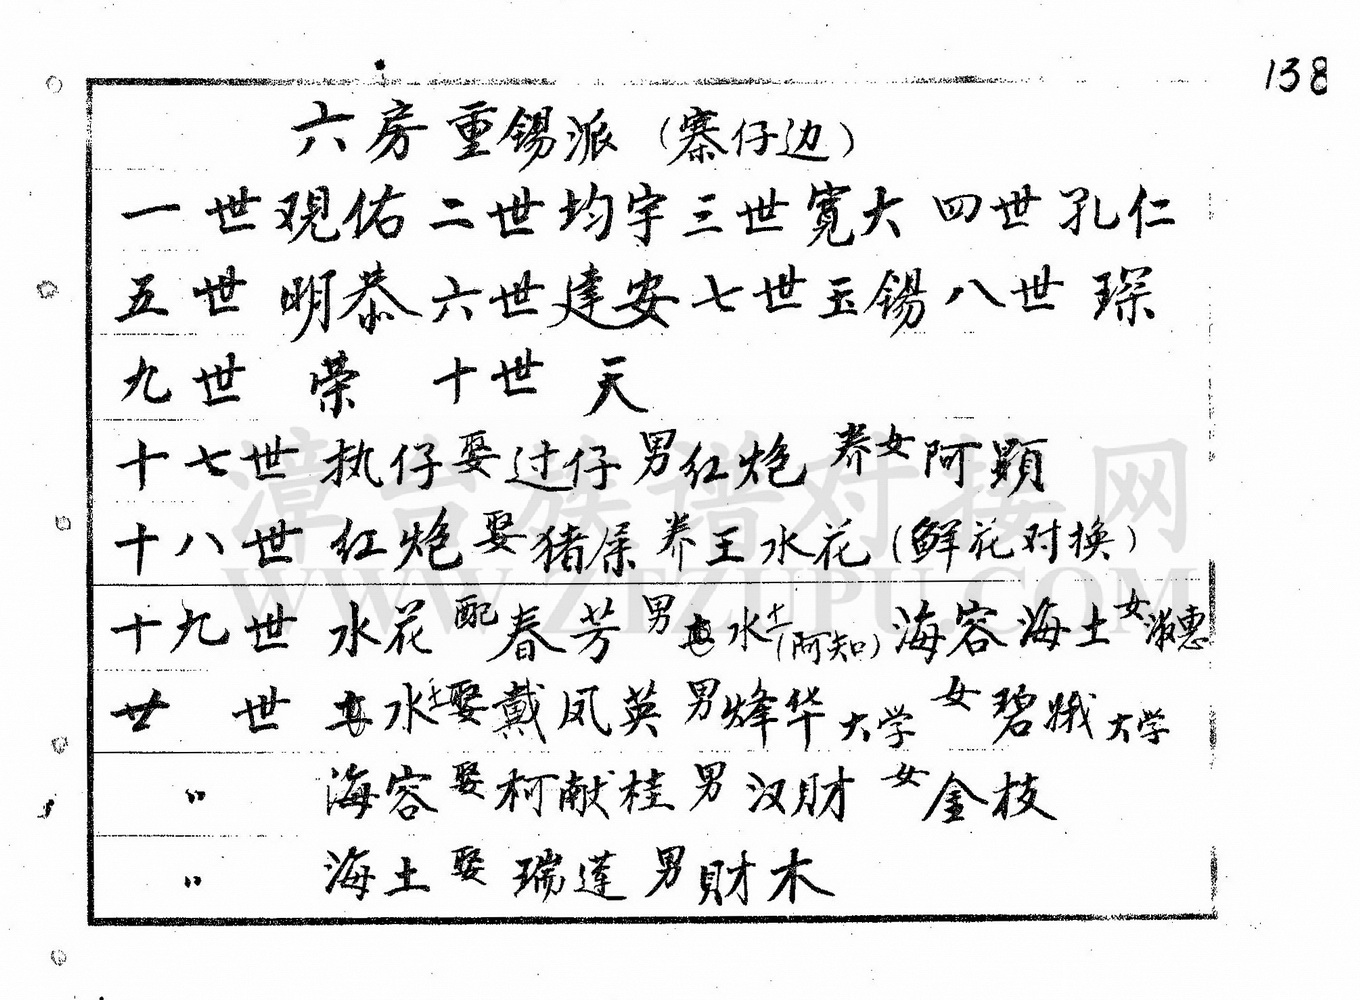 138
六房重锡派（寨仔边）
一世观佑 二世均宇 三世寬大 四世孔仁
五世明恭 六世達安 七世玉锡 八世琛
九世 荣 十世 天
十七世 执仔 娶 过仔 男 红炮 养女 阿顕
十八世 红炮 娶 猪屎 养 王水花（鲜花对换）
十九世 水花 配 春芳 男 水土（阿知） 海容 海土 女 淑惠
廿世 水土 娶 戴凤英 男 烽华 大学 女 碧娥 大学
〃 海容 娶 柯献桂 男 汉財 女 金枝
〃 海土 娶 瑞莲 男 財木
漳台族谱对接网
WWW.ZEZUPU.COM